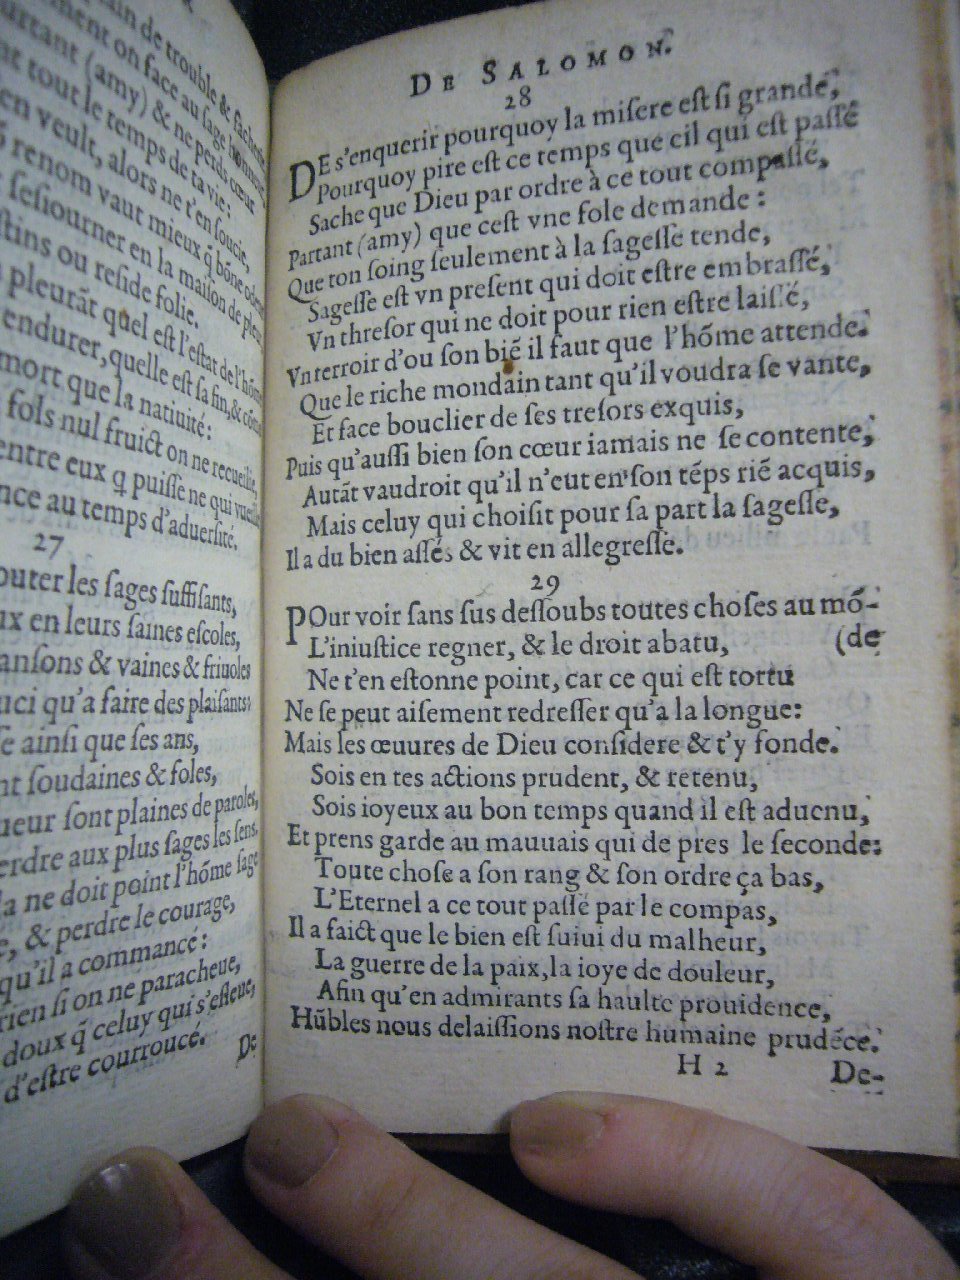 de trouble & fâcherie
ment on face au sage
(amy) & ne perds cœur
tout le temps de ta vie:
en veult, alors ne t'en soucie,
renom vaut mieux q̃ bõne
seſiourner en la maiſon de pleur
ſtins ou reſide folie.
pleurãt quel eſt l'eſtat de l'hõme
endurer, quelle eſt ſa fin, &
mort que la natiuité:
fols nul fruict on ne recueille,
entre eux q puiſſe ne qui vueille
nce au temps d'aduerſité.
27
outer les ſages ſuffiſants,
ux en leurs ſaines eſcoles,
anſons & vaines & friuoles
uci qu'a faire des plaiſants:
e ainſi que ſes ans,
nt ſoudaines & foles,
ueur ſont plaines de paroles,
erdre aux plus ſages les ſens.
la ne doit point l'hõme ſage
e, & perdre le courage,
qu'il a commancé:
rien ſi on ne paracheue,
doux q̃ celuy qui s'eſleue,
d'eſtre courroucé.
De
DE SALOMON.
28
DE s'enquerir pourquoy la miſere eſt ſi grande,
Pourquoy pire eſt ce temps que cil qui eſt paſſé
Sache que Dieu par ordre à ce tout compaſſé,
Partant (amy) que ceſt vne fole demande:
Que ton ſoing ſeulement à la ſageſſe tende,
Sageſſe eſt vn preſent qui doit eſtre embraſſé,
Vn threſor qui ne doit pour rien eſtre laiſſé,
Vn terroir d'ou ſon biẽ il faut que l'hõme attende.
Que le riche mondain tant qu'il voudra ſe vante,
Et face bouclier de ſes treſors exquis,
Puis qu'auſſi bien ſon cœur iamais ne ſe contente,
Autãt vaudroit qu'il n'eut en ſon tẽps riẽ acquis,
Mais celuy qui choiſit pour ſa part la ſageſſe,
Il a du bien aſſés & vit en allegreſſe.
29
POur voir ſans ſus deſſoubs toutes choſes au mõ-
L'iniuſtice regner, & le droit abatu, (de
Ne t'en eſtonne point, car ce qui eſt tortu
Ne ſe peut aiſement redreſſer qu'a la longue:
Mais les œuures de Dieu conſidere & t'y fonde.
Sois en tes actions prudent, & retenu,
Sois ioyeux au bon temps quand il eſt aduenu,
Et prens garde au mauuais qui de pres le ſeconde:
Toute choſe a ſon rang & ſon ordre ça bas,
L'Eternel a ce tout paſſé par le compas,
Il a faict que le bien eſt ſuiui du malheur,
La guerre de la paix, la ioye de douleur,
Afin qu'en admirants ſa haulte prouidence,
Hũbles nous delaiſſions noſtre humaine prudẽce.
H 2
De-